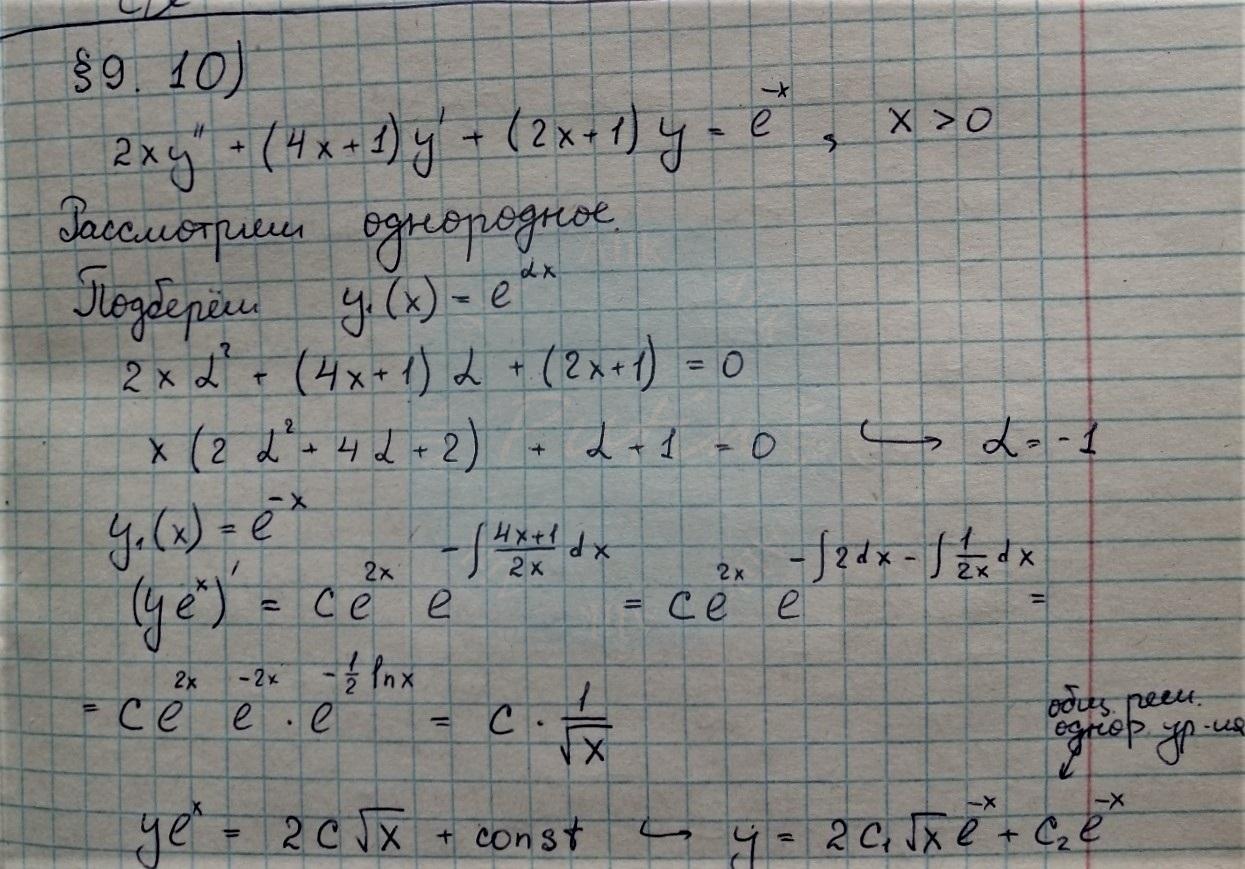 §9. 10)
2xy'' + (4x+1)y' + (2x+1)y = e^{-x}, x > 0
Рассмотрим однородное.
Подберём y₁(x) = e^{αx}
2xα² + (4x+1)α + (2x+1) = 0
x(2α² + 4α + 2) + α + 1 = 0 ↪ α = -1
y₁(x) = e^{-x}
(ye^{x})' = ce^{2x} e^{-∫\frac{4x+1}{2x}dx} = ce^{2x} e^{-∫2dx - ∫\frac{1}{2x}dx} =
= ce^{2x} e^{-2x} · e^{-\frac{1}{2}lnx} = c · \frac{1}{√x}
общ. реш.
однор. ур-ия
↙
ye^{x} = 2c√x + const ↪ y = 2c₁√x e^{-x} + c₂e^{-x}